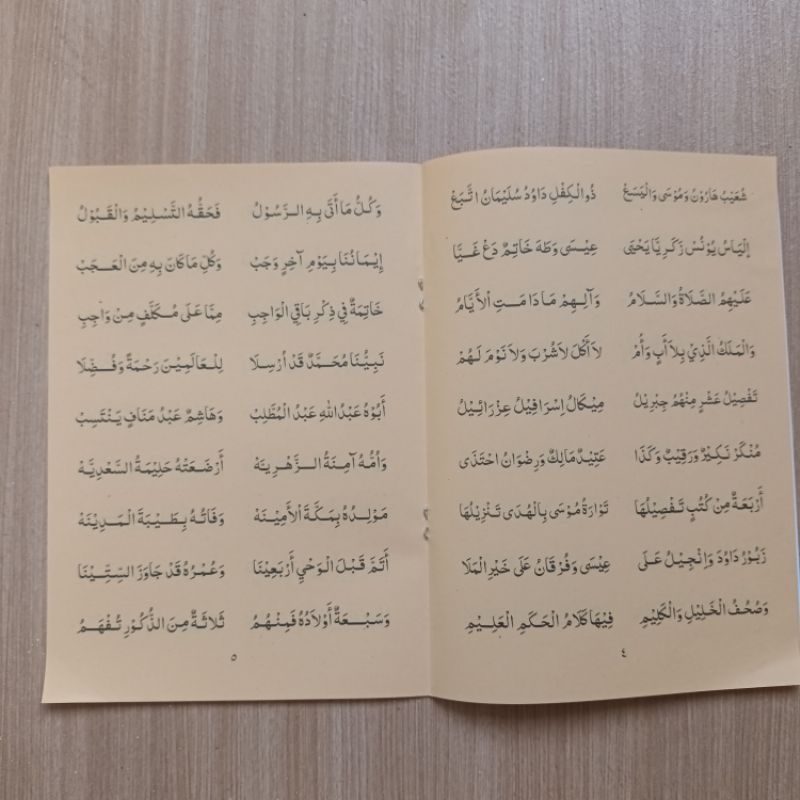 شُعَيْبُ هَارُوْنُ وَمُوْسَى وَالْيَسَعْ ذُو الْكِفْلِ دَاوُدُ سُلَيْمَانُ اتَّبَعْ
اِلْيَاسُ يُوْنُسْ زَكَرِيَّا يَحْيَى عِيْسَى وَطٰهَ خَاتِمٌ دَعْ غَيَّا
عَلَيْهِمُ الصَّلَاةُ وَالسَّلَامُ وَآلِهِمْ مَا دَامَتِ الْأَيَّامُ
وَالْمَلَكُ الَّذِيْ بِلَا أَبٍ وَأُمْ لَا أَكْلَ لَا شُرْبَ وَلَا نَوْمَ لَهُمْ
تَفْصِيْلُ عَشْرٍ مِنْهُمُ جِبْرِيْلُ مِيْكَالُ اِسْرَافِيْلُ عِزْرَائِيْلُ
مُنْكَرْ نَكِيْرٌ وَرَقِيْبٌ وَكَذَا عَتِيْدٌ مَالِكٌ وَرِضْوَانُ احْتَذَى
أَرْبَعَةٌ مِنْ كُتُبٍ تَفْصِيْلُهَا تَوْارَةُ مُوْسَى بِالْهُدَى تَنْزِيْلُهَا
زَبُوْرُ دَاوُدَ وَاِنْجِيْلُ عَلَى عِيْسَى وَفُرْقَانُ عَلَى خَيْرِ الْمَلَا
وَصُحُفُ الْخَلِيْلِ وَالْكَلِيْمِ فِيْهَا كَلَامُ الْحَكَمِ الْعَلِيْمِ
٤
وَكُلُّ مَا أَتَى بِهِ الرَّسُوْلُ فَحَقُّهُ التَّسْلِيْمُ وَالْقَبُوْلُ
إِيْمَانُنَا بِيَوْمِ آخِرٍ وَجَبْ وَكُلِّ مَا كَانَ بِهِ مِنَ الْعَجَبْ
خَاتِمَةٌ فِي ذِكْرِ بَاقِي الْوَاجِبِ مِمَّا عَلَى مُكَلَّفٍ مِنْ وَاجِبِ
نَبِيُّنَا مُحَمَّدٌ قَدْ أُرْسِلَا لِلْعَالَمِيْنَ رَحْمَةً وَفُضِّلَا
أَبُوْهُ عَبْدُ اللهِ عَبْدُ الْمُطَّلِبْ وَهَاشِمٌ عَبْدُ مَنَافٍ يَنْتَسِبْ
وَأُمُّهُ آمِنَةُ الزُّهْرِيَّهْ أَرْضَعَتْهُ حَلِيْمَةُ السَّعْدِيَّهْ
مَوْلِدُهُ بِمَكَّةَ الْأَمِيْنَهْ وَفَاتُهُ بِطَيْبَةَ الْمَدِيْنَهْ
أَتَمَّ قَبْلَ الْوَحْيِ أَرْبَعِيْنَا وَعُمْرُهُ قَدْ جَاوَزَ السِّتِّيْنَا
وَسَبْعَةٌ أَوْلَادُهُ فَمِنْهُمُ ثَلَاثَةٌ مِنَ الذُّكُوْرِ تُفْهَمُ
٥